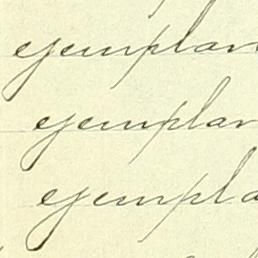 ejemplar
ejemplar
ejempla